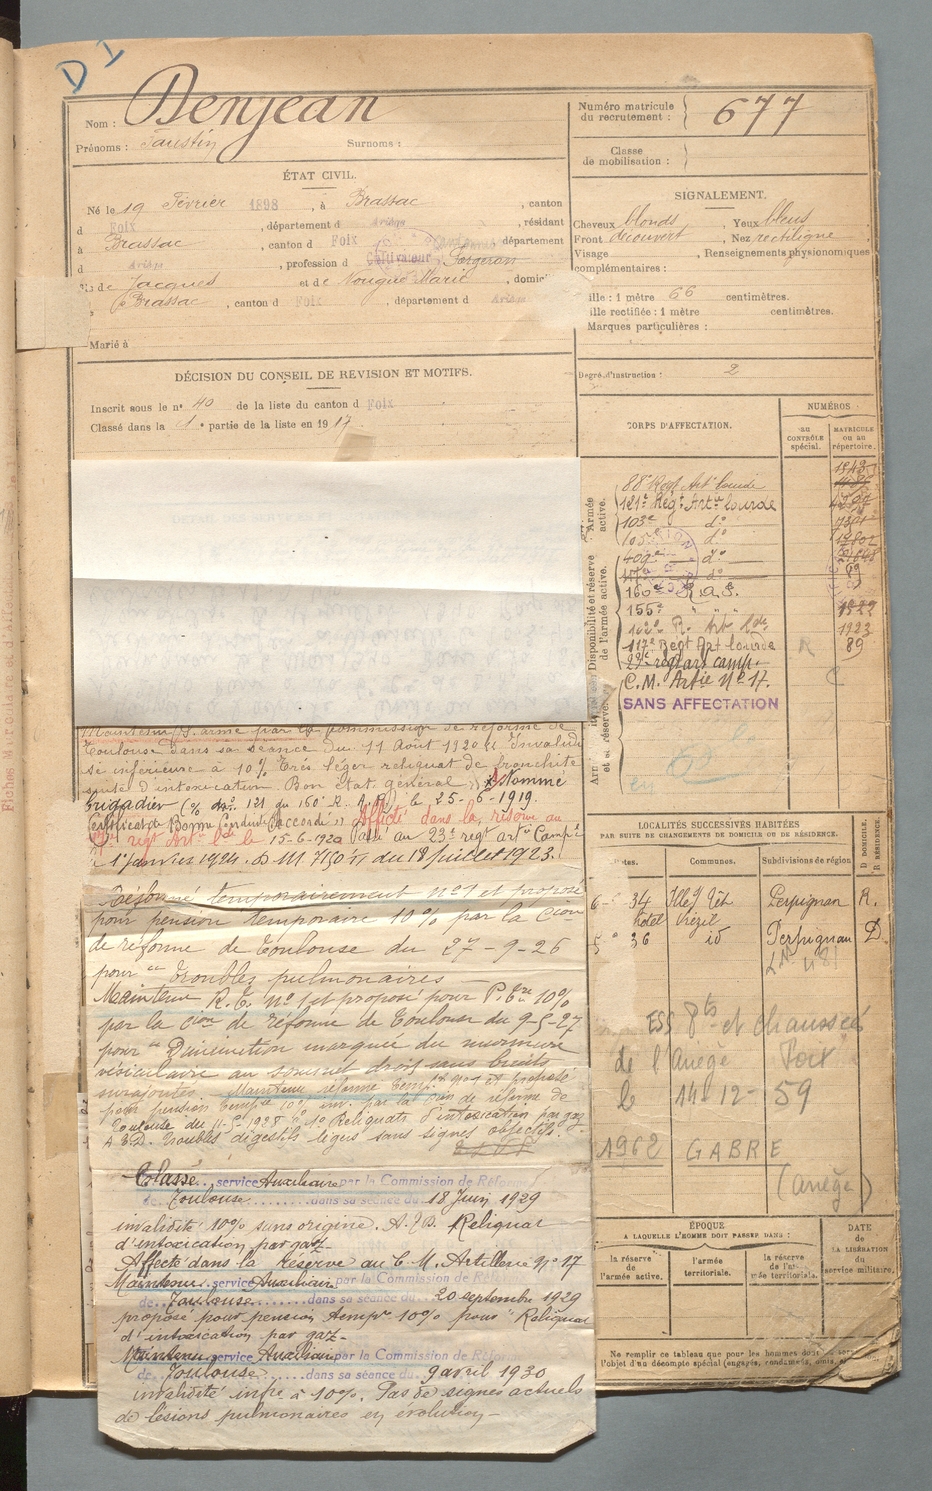 D I
Nom : Denjean
Prénoms : Faustin Surnoms :
ÉTAT CIVIL.
Né le 19 Février 1898, à Brassac, canton
d Foix, département d Ariège, résidant
à Brassac, canton d Foix département
d Ariège, profession d Cultivateur Forgeron
de Jacques et de Nougué Marie, domici
Brassac, canton d Foix, département d Ariège
Marié à
DÉCISION DU CONSEIL DE REVISION ET MOTIFS.
Inscrit sous le n° 40 de la liste du canton d Foix
Classé dans la 1e partie de la liste en 1917.
Maintenu S. armé par la commission de réforme de
Toulouse dans sa séance du 11 Août 1920 Invalidi
té inférieure à 10% Très léger reliquat de bronchite
suite d'intoxication Bon état général Nommé
brigadier 121 du 160e R. A. P.) le 25-6-1919.
Certificat de Bonne Conduite "Accordé" Affecté dans la réserve au
regt Artie lde le 15-6-1920 Passé au 23e regt artie Campe
1er janvier 1924. D M 7150 du 18 Juillet 1923.
Réformé temporairement n°1 et proposé
pour pension temporaire 10% par la Cion
de réforme de Toulouse du 27-9-26
pour "troubles pulmonaires
Maintenu R.T. N°1 et proposé pour P. Tre 10%
par la Cion de réforme de Toulouse du 9-5-27
pour "Diminution marquée du murmure
vésiculaire au sommet droit sans bruits
surajoutés Maintenu réformé tempre n°1 et proposé
pour pension tempre 10% inv. par la Cion de réforme de
Toulouse du 11-5-1928 1° Reliquats d'intoxication par gaz
A.3.D. Troubles digestifs légers sans signes objectifs.
Classé service Auxiliaire par la Commission de Réforme
de Toulouse dans sa séance du 18 Juin 1929
invalidité 10% sans origine. A.J.D. Reliquat
d'intoxication par gaz-
Affecté dans la Réserve au C. M. Artillerie n° 17
Maintenu service Auxiliaire par la Commission de Réf
de Toulouse dans sa séance du 20 septembre 1929
proposé pour pension tempre 10% pour "Reliquat
d'intoxication par gaz-
Maintenu service Auxiliaire par la Commission de Réfor
de Toulouse dans sa séance du 9 avril 1930
invalidité infre à 10%. Pas de signes actuels
de lésions pulmonaires en évolution-
Numéro matricule
du recrutement : 677
Classe
de mobilisation :
SIGNALEMENT.
Cheveux blonds, Yeux bleus
Front découvert, Nez rectiligne
Visage, Renseignements physionomiques
complémentaires :
ille : 1 mètre 66 centimètres.
ille rectifiée : 1 mètre centimètres.
Marques particulières :
Degré d'instruction : 2
CORPS D'AFFECTATION.
NUMÉROS
AU CONTRÔLE spécial.
MATRICULE ou au répertoire.
Armée active.
Disponibilité et réserve de l'armée active.
88e Regt Art lourde
121e Regt Artie lourde
103e do
105e do
409e do
do
160e R.A.P.
155e " " "
162e R. Art lde 1923
117e Regt Art lourde 89
régt art camp.
C.M. Artie N° 17.
SANS AFFECTATION
LOCALITÉS SUCCESSIVES HABITÉES
PAR SUITE DE CHANGEMENTS DE DOMICILE OU DE RÉSIDENCE.
Dates. Communes. Subdivisions de région D DOMICILE. R RÉSIDENCE.
6- 34 Ille s/ Têt Perpignan R.
hôtel
5 36 id Perpignan D.
ESS Pts et chaussées
de l'Ariège Foix
le 14-12-59
1962 GABRE
(Ariège)
ÉPOQUE
A LAQUELLE L'HOMME DOIT PASSER DANS :
la réserve de l'armée active.
l'armée territoriale.
la réserve de l'armée territoriale.
DATE de LA LIBÉRATION du service militaire.
Ne remplir ce tableau que pour les hommes dont
l'objet d'un décompte spécial (engagés, condamnés, omis,